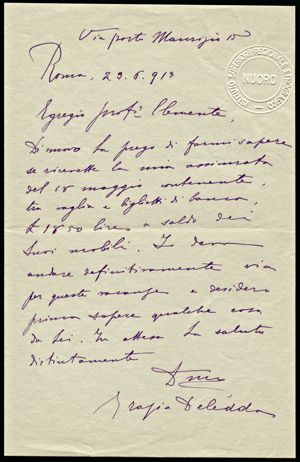 Via porto Maurizio 15
Roma, 23.6.913
Egregio prof.r Clemente,
Di nuovo La prego di farmi sapere
se ricevette la mia assicurata
del 18 maggio contenente,
tra vaglia e biglietti di banca,
£ 1850 lire a saldo dei
Suoi mobili. Io devo
andare definitivamente via
per queste vacanze e desidero
prima sapere qualche cosa
da Lei. In attesa La saluto
distintamente
Grazia Deledda
ISTITUTO SUPERIORE REGIONALE ETNOGRAFICO
NUORO